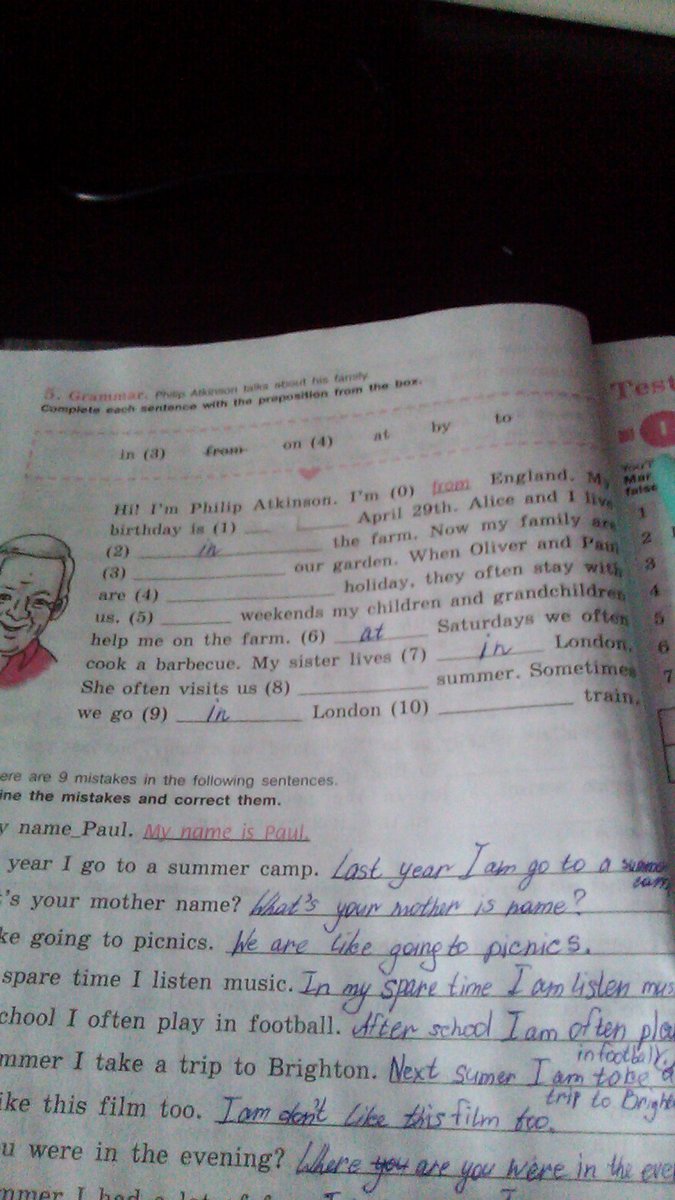 5. Grammar. Philip Atkinson talks about his family.
Complete each sentence with the preposition from the box.
in (3) from on (4) at by to
Hi! I'm Philip Atkinson. I'm (0) from England. My
birthday is (1) ______ April 29th. Alice and I live
(2) in the farm. Now my family are
(3) ______ our garden. When Oliver and Pam
are (4) ______ holiday, they often stay with
us. (5) ______ weekends my children and grandchildren
help me on the farm. (6) at Saturdays we often
cook a barbecue. My sister lives (7) in London.
She often visits us (8) ______ summer. Sometimes
we go (9) in London (10) ______ train.
ere are 9 mistakes in the following sentences.
ine the mistakes and correct them.
y name_Paul. My name is Paul.
year I go to a summer camp. Last year I am go to a
's your mother name? What's your mother is name?
ke going to picnics. We are like going to picnics.
spare time I listen music. In my spare time I am listen mus
chool I often play in football. After school I am often pla
in football.
mmer I take a trip to Brighton. Next sumer I am to be a
trip to Bright
ike this film too. I am don't like this film too.
u were in the evening? Where you are you were in the eve
mmer I had a lot of
Test
1
You'r
Mar
false
1
2
3
4
5
6
7